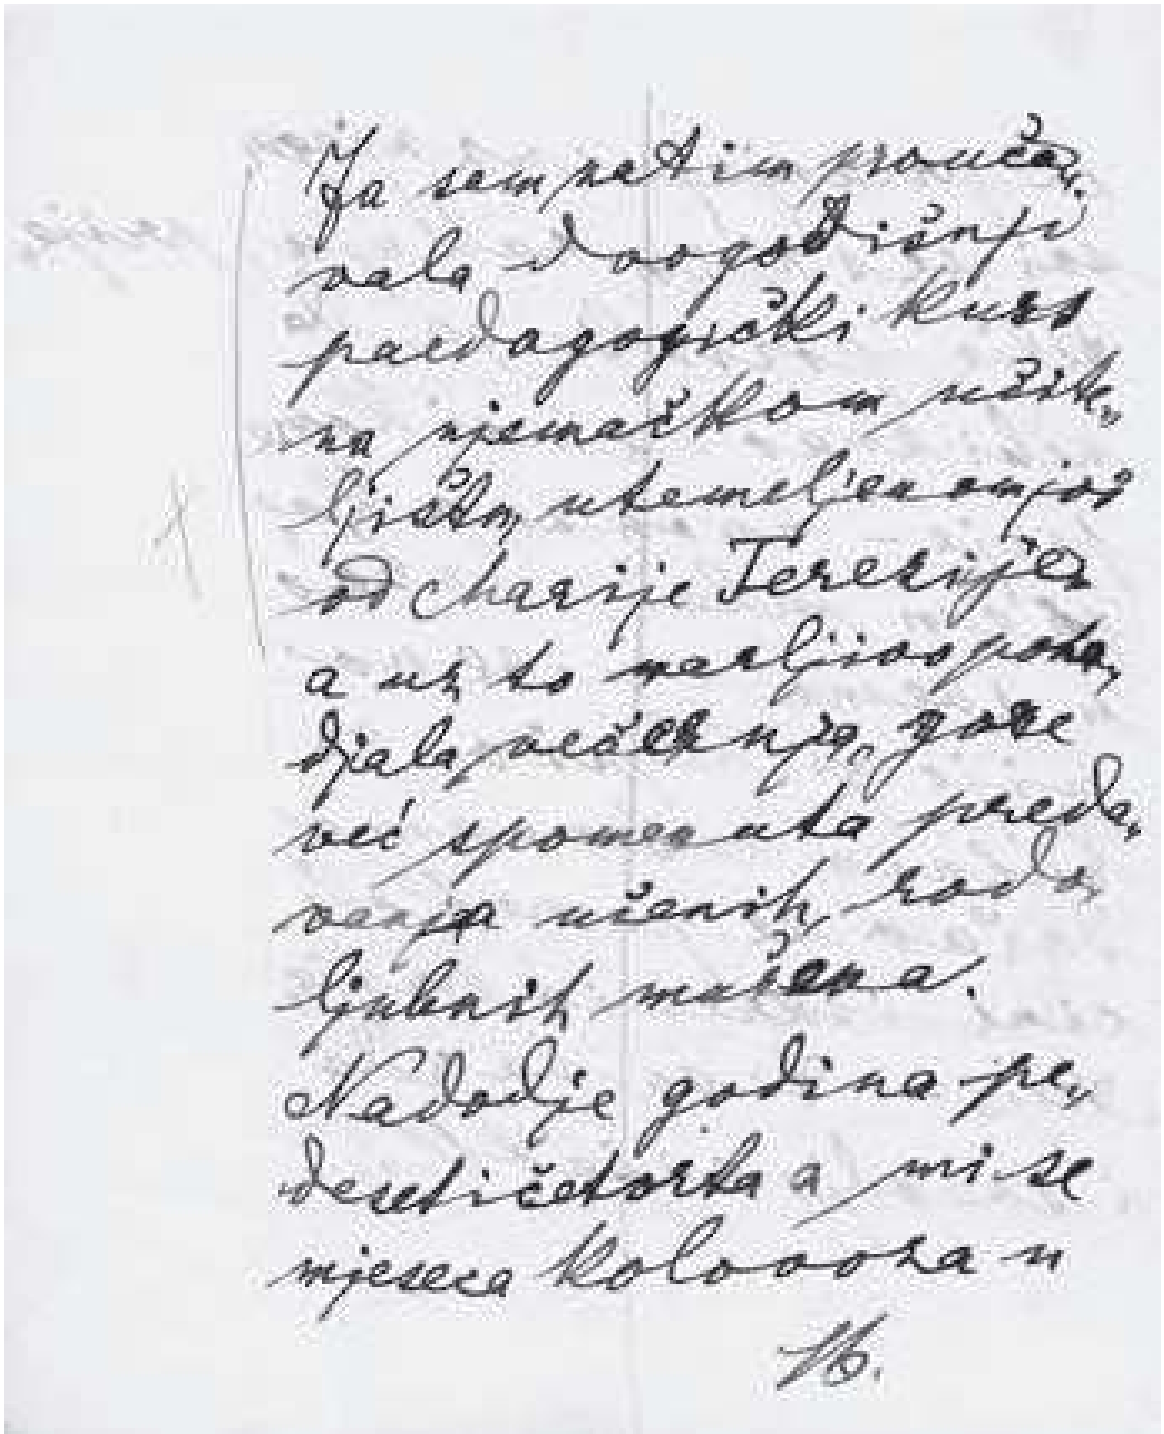 Ja sam zatim prouča„
vala dvogodišnji
paedagogički kurs
na njemačkom učite„
ljištu, utemeljenom još
od Marije Terezije,
a uz to marljivo poha„
djala večernja, gore
već spomenuta preda„
vanja učenih, rodo„
ljubnih muževa.
Nadodje godina pe„
desetičetvrta a mi se
mjeseca kolovoza u
16.